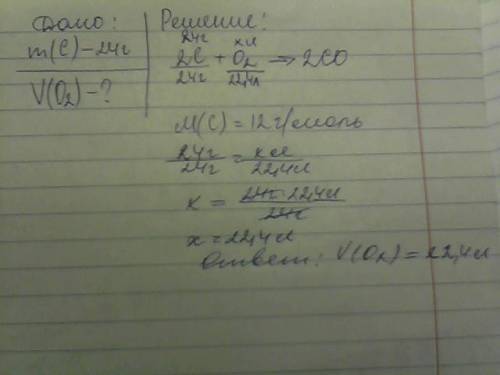 Дано:
m(C) – 24г
V(O₂) – ?
Решение:
24г хл
2C + O₂ ⇒ 2CO
24г 22,4л
M(C) = 12 г/моль
24г = хл
24г 22,4л
х = 24г · 22,4л
24г
х = 22,4л
Ответ: V(O₂) = 22,4л